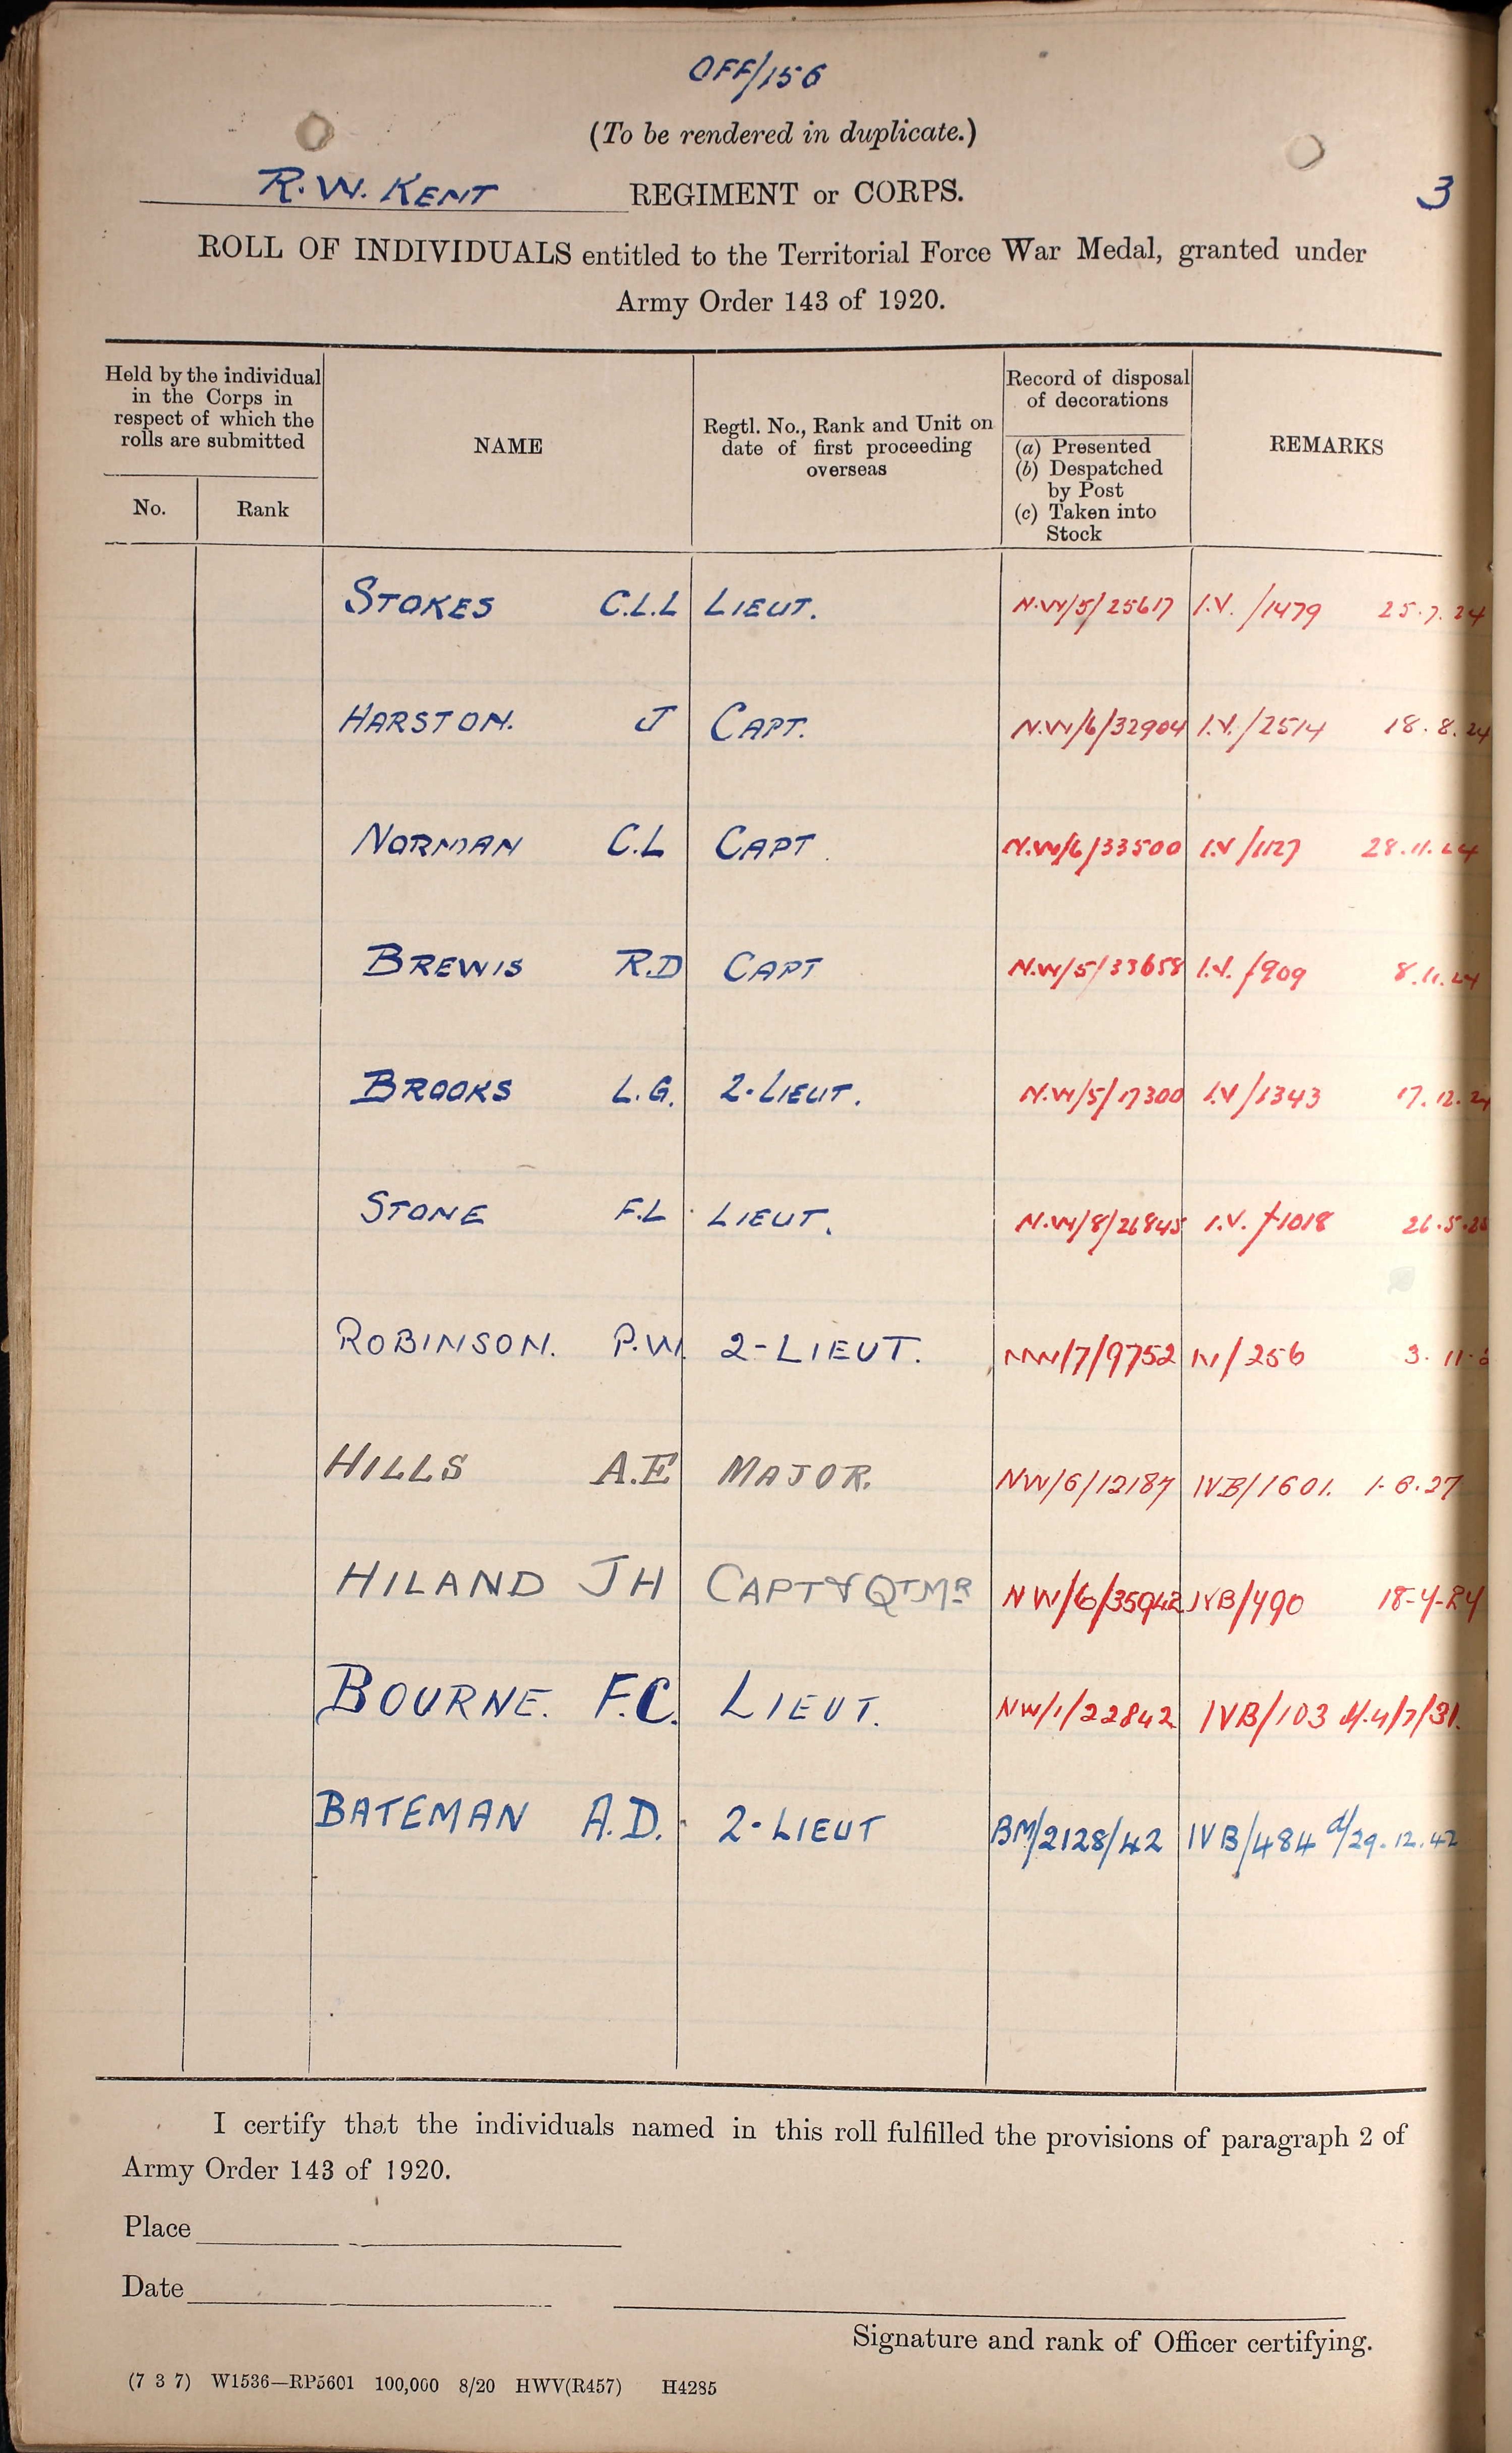 OFF/156
(To be rendered in duplicate.)
R.W. KENT REGIMENT or CORPS. 3
ROLL OF INDIVIDUALS entitled to the Territorial Force War Medal, granted under
Army Order 143 of 1920.
Held by the individual
in the Corps in
respect of which the
rolls are submitted
No. Rank
NAME
Regtl. No., Rank and Unit on
date of first proceeding
overseas
Record of disposal
of decorations
(a) Presented
(b) Despatched
by Post
(c) Taken into
Stock
REMARKS
STOKES C.L.L LIEUT. N.W/5/25617 I.V./1479 25.7.24
HARSTON. J CAPT. N.W/6/32904 I.V./2514 18.8.24
NORMAN C.L CAPT. N.W/6/33500 I.V/1127 28.11.24
BREWIS R.D CAPT N.W/5/33658 I.V./909 8.11.24
BROOKS L.G. 2-LIEUT. N.W/5/17300 I.V/1343 17.12.24
STONE F.L LIEUT. N.W/8/26845 I.V./1018 26.5.25
ROBINSON. P.W. 2-LIEUT. NW/7/9752 IV/256 3.11.
HILLS A.E MAJOR. NW/6/12187 IVB/1601. 1.6.27
HILAND JH CAPT & QTMR NW/6/35942 IVB/490 18-4-24
BOURNE. F.C. LIEUT. NW/1/22842 IVB/103 d/.4/7/31.
BATEMAN A.D. 2-LIEUT BM/2128/42 IVB/484 d/29.12.42
I certify that the individuals named in this roll fulfilled the provisions of paragraph 2 of
Army Order 143 of 1920.
Place
Date
Signature and rank of Officer certifying.
(7 3 7) W1536—RP5601 100,000 8/20 HWV(R457) H4285